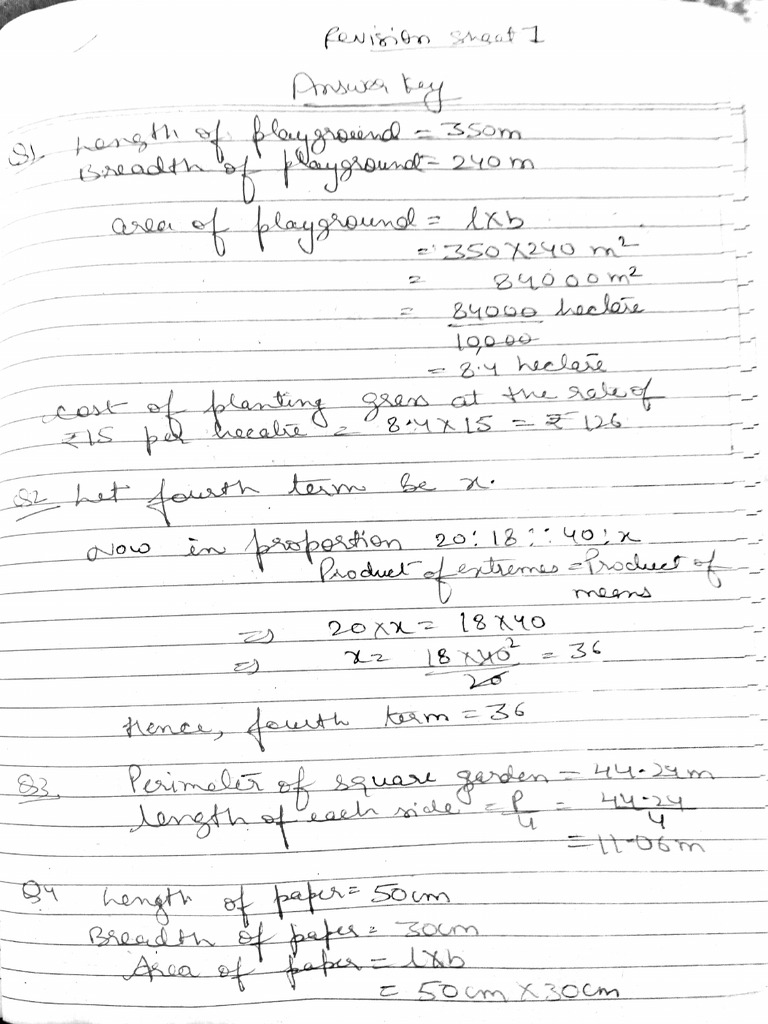 Revision sheet 1
Answer key
Q1. Length of playground = 350m
Breadth of playground = 240 m
area of playground = l×b
= 350×240 m²
= 84000 m²
= 84000 hectare
10,000
= 8.4 hectare
cost of planting grass at the rate of
₹15 per hecatre = 8.4×15 = ₹ 126
Q2 Let fourth term be x.
Now in proportion 20:18::40:x
Product of extremes = Product of
means
⇒ 20×x = 18×40
⇒ x = 18×40² = 36
20
Hence, fourth term = 36
Q3. Perimeter of square garden = 44.24m
length of each side = P/4 = 44.24/4
= 11.06m
Q4 Length of paper = 50cm
Breadth of paper = 30cm
Area of paper = l×b
= 50cm × 30cm